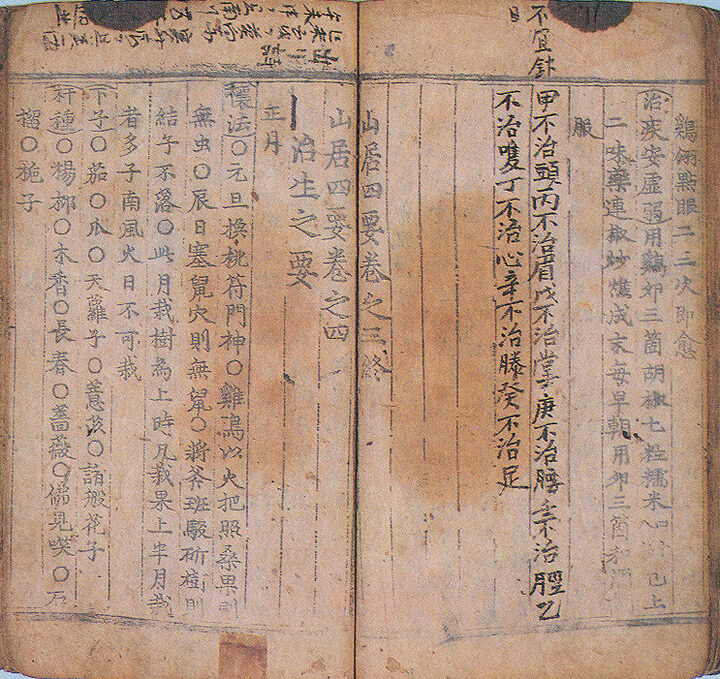 不宜針
日
鷄翎點眼二三次即愈
治疾安虛弱用鷄卵三箇胡椒七粒糯米 已上
二味藥連椒炒燋成末每早朝用卵三箇和
服
甲不治頭丙不治眉戊不治掌庚不治腰壬不治脛乙
不治喉丁不治心辛不治膝癸不治足
山居四要卷之三終
山居四要卷之四
治生之要
正月
禳法〇元旦換桃符門神〇雞鳴以火把照桑果則
無虫〇辰日塞鼠穴則無鼠〇將斧班駁斫樹則
結子不落〇此月栽樹為上時凡栽果上半月栽
者多子南風火日不可栽
下子〇茄〇瓜〇天蘿子〇薏苡〇諸般花子
扦種〇楊柳〇木香〇長春〇薔薇〇佛見咲〇石
榴〇梔子